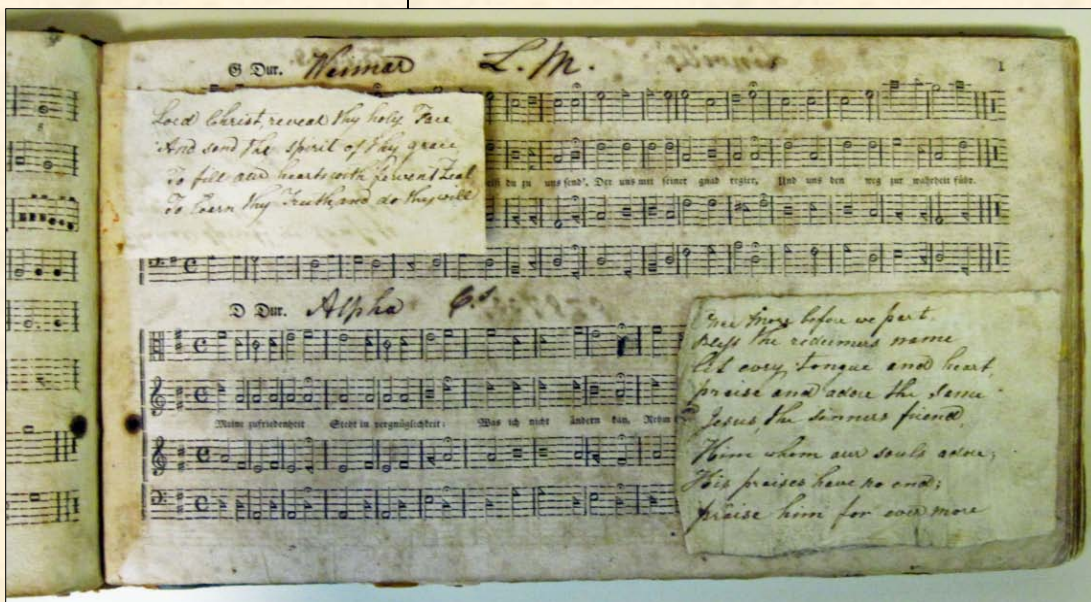 G Dur. Weimar L. M. 1
Lord Christ, reveal thy holy Face
And send the spirit of thy grace,
To fill our hearts with fervent Zeal
To learn thy Truth, and do thy will
du zu uns send', Der uns mit seiner gnad regier, Und uns den weg zur wahrheit führ.
D Dur. Alpha 6.s
Meine zufriedenheit Steht in vergnüglichkeit: Was ich nicht ändern kan, Nehm
Once more before we part
Bless the redeemers name
let every tongue and heart,
praise and adore the same
Jesus, the sinners friend,
Him whom our souls adore;
His praises have no end;
praise him for ever more